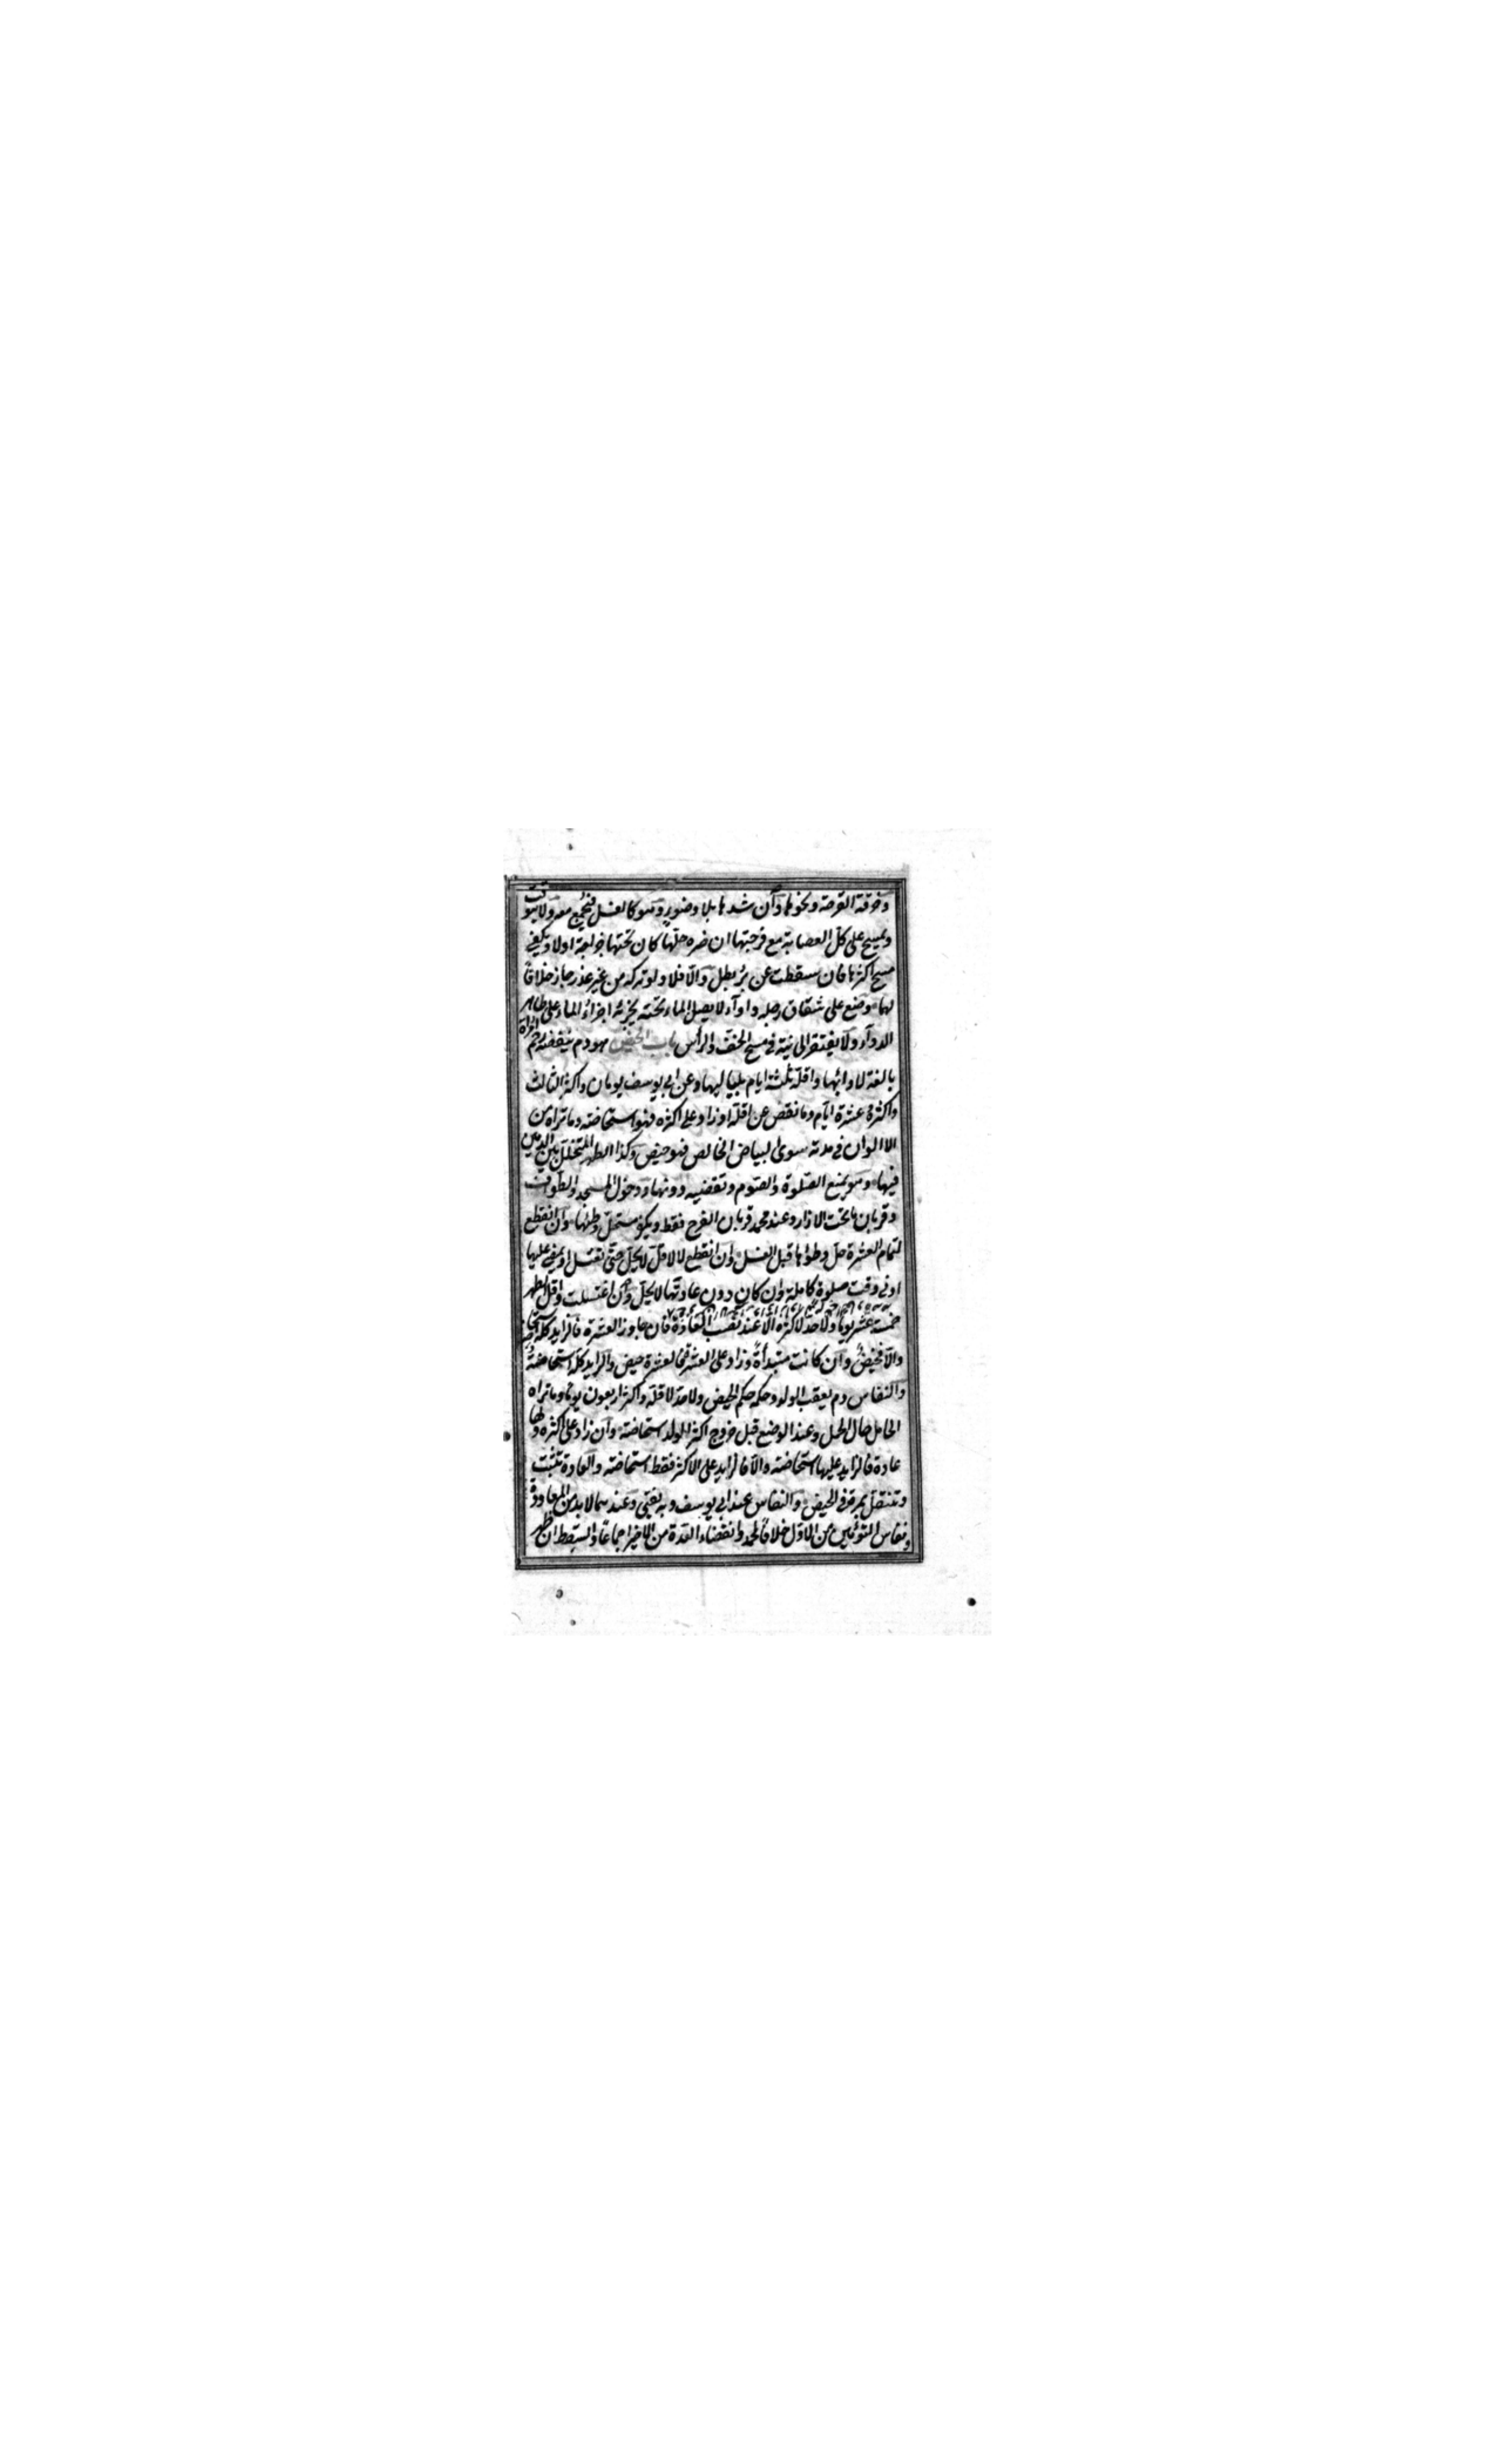 وخرقة القرحة ونحوها وان شدها بلا وضوء وهو كالغسل فيجمع معه ولا يتوقت
ويمسح على كل العصابة مع فرجتها ان ضره حلها كان تحتها جراحة اولا ويكفى
مسح اكثرها فان سقطت عن برء بطل والا فلا ولو تركه من غير عذر جاز خلافا
لهما وضع على شقاق رجله دواء لا يصل الماء تحته يجزئه اجراء الماء على ظاهر
الدواء ولا يفتقر الى نية فى مسح الخف والرأس باب الحيض هو دم ينفضه رحم امرأة
بالغة لا داء بها واقله ثلثة ايام بلياليها وعن ابى يوسف يومان واكثر الثالث
واكثره عشرة ايام وما نقص عن اقله او زاد على اكثره فهو استحاضة وما تراه من
الالوان فى مدته سوى البياض الخالص فهو حيض وكذا الطهر المتخلل بين الدمين
فيها وهو يمنع الصلوة والصوم وتقضيه دونها ودخول المسجد والطواف
وقربان ما تحت الازار وعند محمد قربان الفرج فقط ويكفر مستحل وطئها وان انقطع
لتمام العشرة حل وطؤها قبل الغسل وان انقطع لاقل لا يحل حتى تغتسل او يمضى عليها
ادنى وقت صلوة كاملة وان كان دون عادتها لا يحل وان اغتسلت واقل الطهر
خمسة عشر يوما ولا حد لاكثره الا عند نصب العادة فان جاوز العشرة فالزايد كله استحاضة
والا فحيض وان كانت مبتدأة وزاد على العشرة فالعشرة حيض والزايد كله استحاضة
والنفاس دم يعقب الولد وحكمه حكم الحيض ولا حد لاقله واكثره اربعون يوما وما تراه
الحامل حال الحمل وعند الوضع قبل خروج اكثر الولد استحاضة وان زاد على اكثره ولها
عادة فالزايد عليها استحاضة والا فالزايد على الاكثر فقط استحاضة والعادة تثبت
وتنتقل بمرة فى الحيض والنفاس عند ابى يوسف وبه يفتى وعندهما لا بد من المعاودة
ونفاس التوأمين من الاول خلافا لمحمد وانقضاء العدة من الاخير اجماعا والسقط ان ظهر